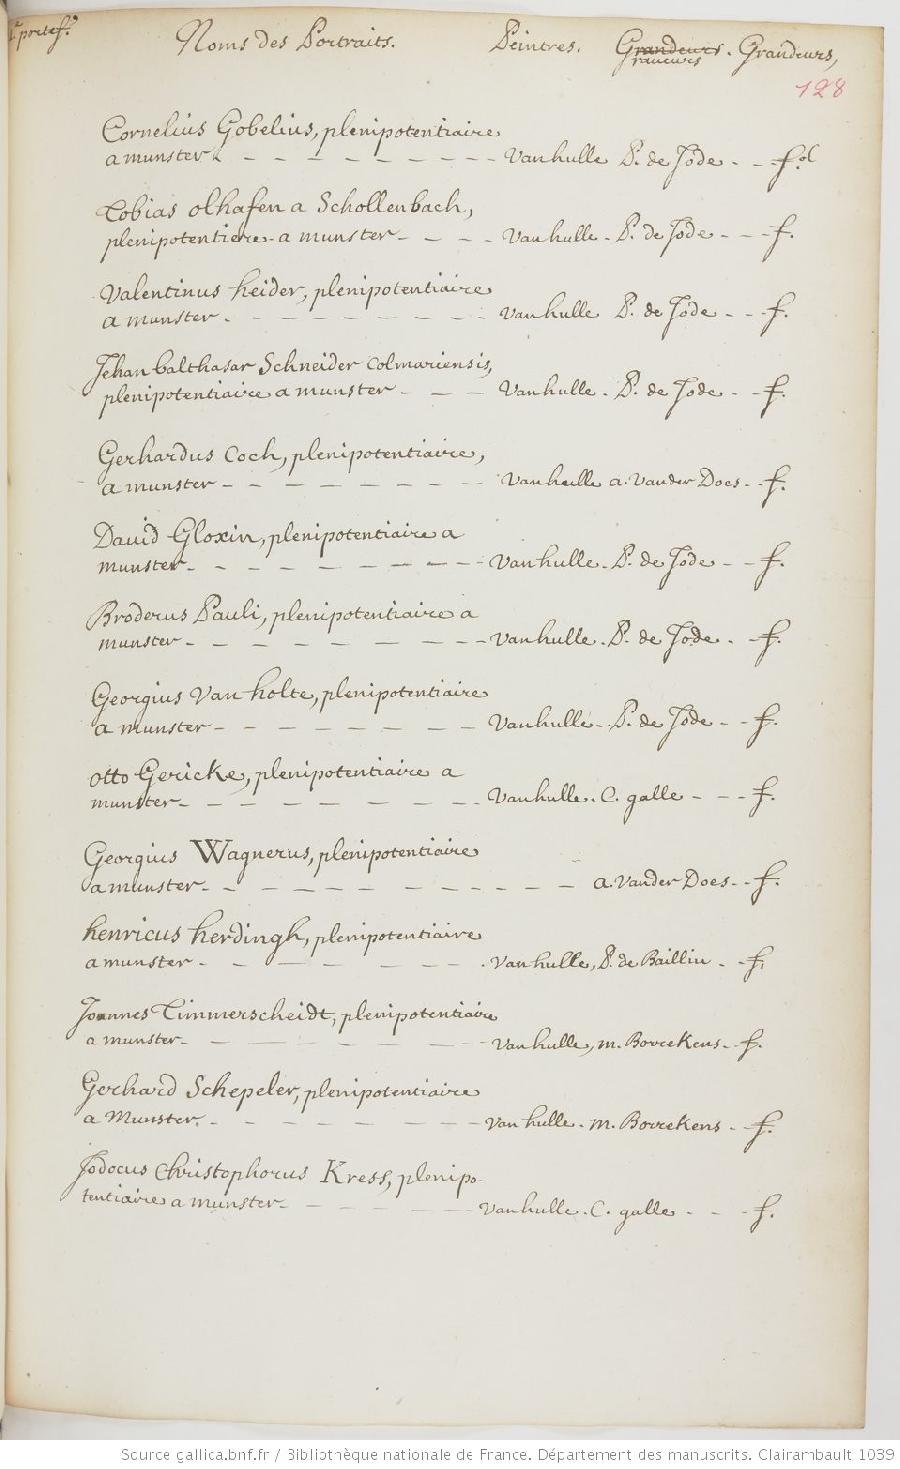 portef.
Noms des Portraits. Peintres. Grandeurs. Grandeurs,
Graueurs
128
Cornelius Gobelius, plenipotentiaire
a munster. - - - - - - - - - Vanhulle P. de Jode - - fol
Tobias olhafen a Schollenbach,
plenipotentiere a munster - - - - Vanhulle - P. de Jode - - - f.
Valentinus heider, plenipotentiaire
a munster. - - - - - - - - Vanhulle P. de Jode - - f.
Jehan balthasar Schneider Colmariensis,
plenipotentiaire a munster - - - Vanhulle - P. de Jode - - f.
Gerhardus Coch, plenipotentiaire,
a munster - - - - - - - - - Vanhulle a. Vander Does - - f.
David Gloxin, plenipotentiaire a
munster - - - - - - - - - - Vanhulle - P. de Jode - - f.
Broderus Pauli, plenipotentiaire a
munster - - - - - - - - - - Vanhulle - P. de Jode - f.
Georgius Van holte, plenipotentiaire
a munster - - - - - - - - Vanhulle - P. de Jode - - f.
otto Gericke, plenipotentiaire a
munster - - - - - - - - - Vanhulle. C. galle - - - f.
Georgius Wagnerus, plenipotentiaire
a munster - - - - - - - - - - - - a. Vander Does - - f.
henricus herdingh, plenipotentiaire
a munster - - - - - - - - Vanhulle, P. de Bailliu - f.
Joannes Timmerscheidt, plenipotentiaire
a munster - - - - - - - - Vanhulle, m. Borrekens - f.
Gerhard Schepeler, plenipotentiaire
a Munster. - - - - - - - - Van hulle - m. Borrekens - f.
Jodocus Christophorus Kress, plenipo-
tentiaire a munster - - - - - - Vanhulle - C. galle - - - f.
Source gallica.bnf.fr / Bibliothèque nationale de France. Département des manuscrits. Clairambault 1039